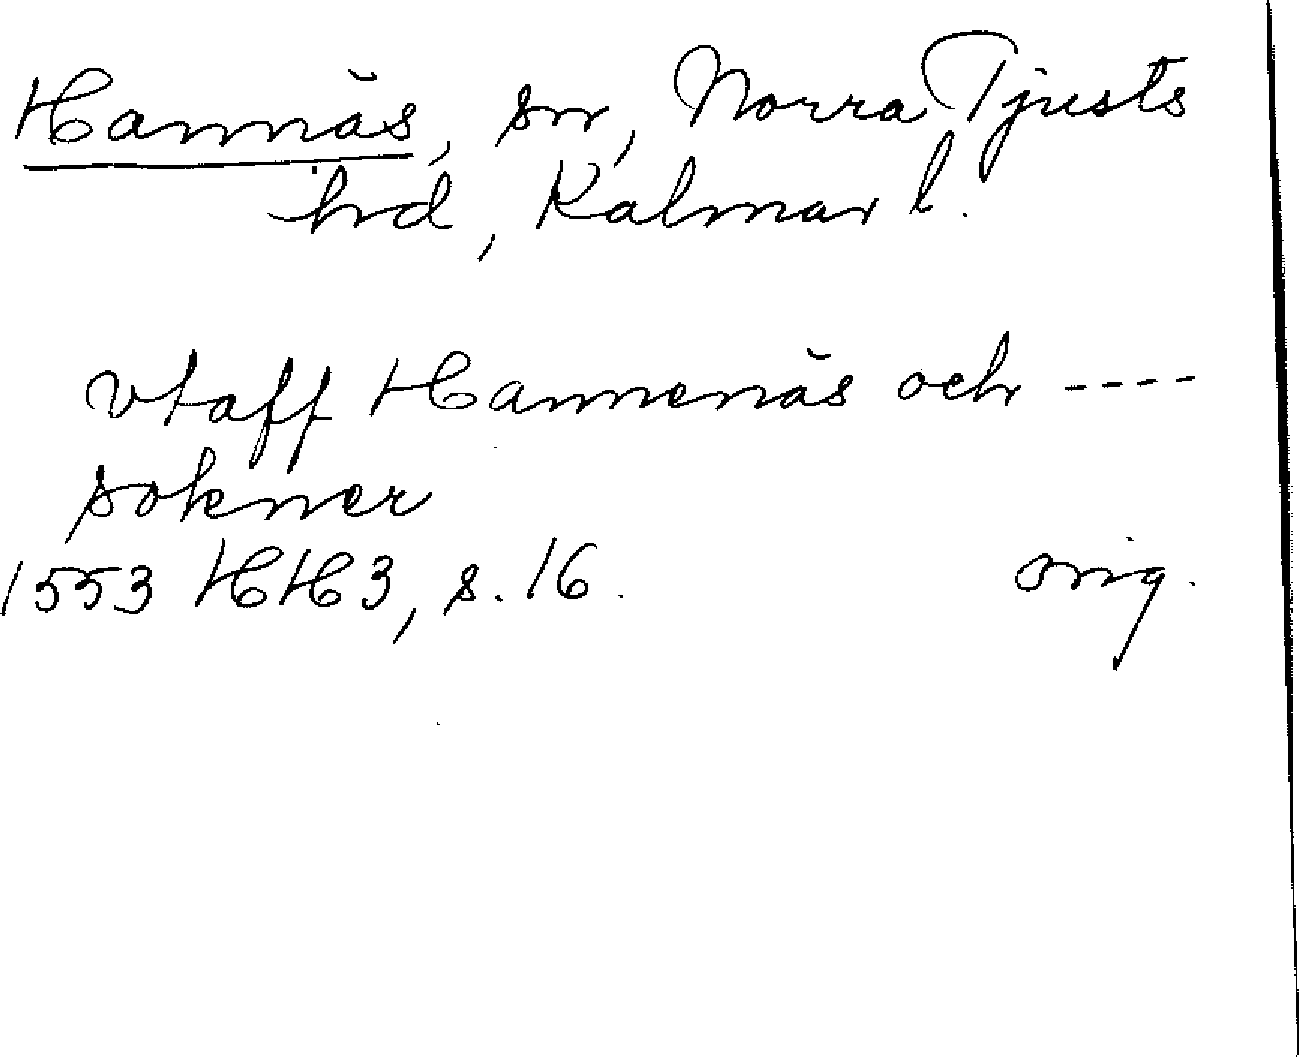 Hannäs, sn, Norra Tjusts
hrd, Kalmar l.
vtaff Hannenäs och ----
sokner
1553 HH3, s. 16. orig.